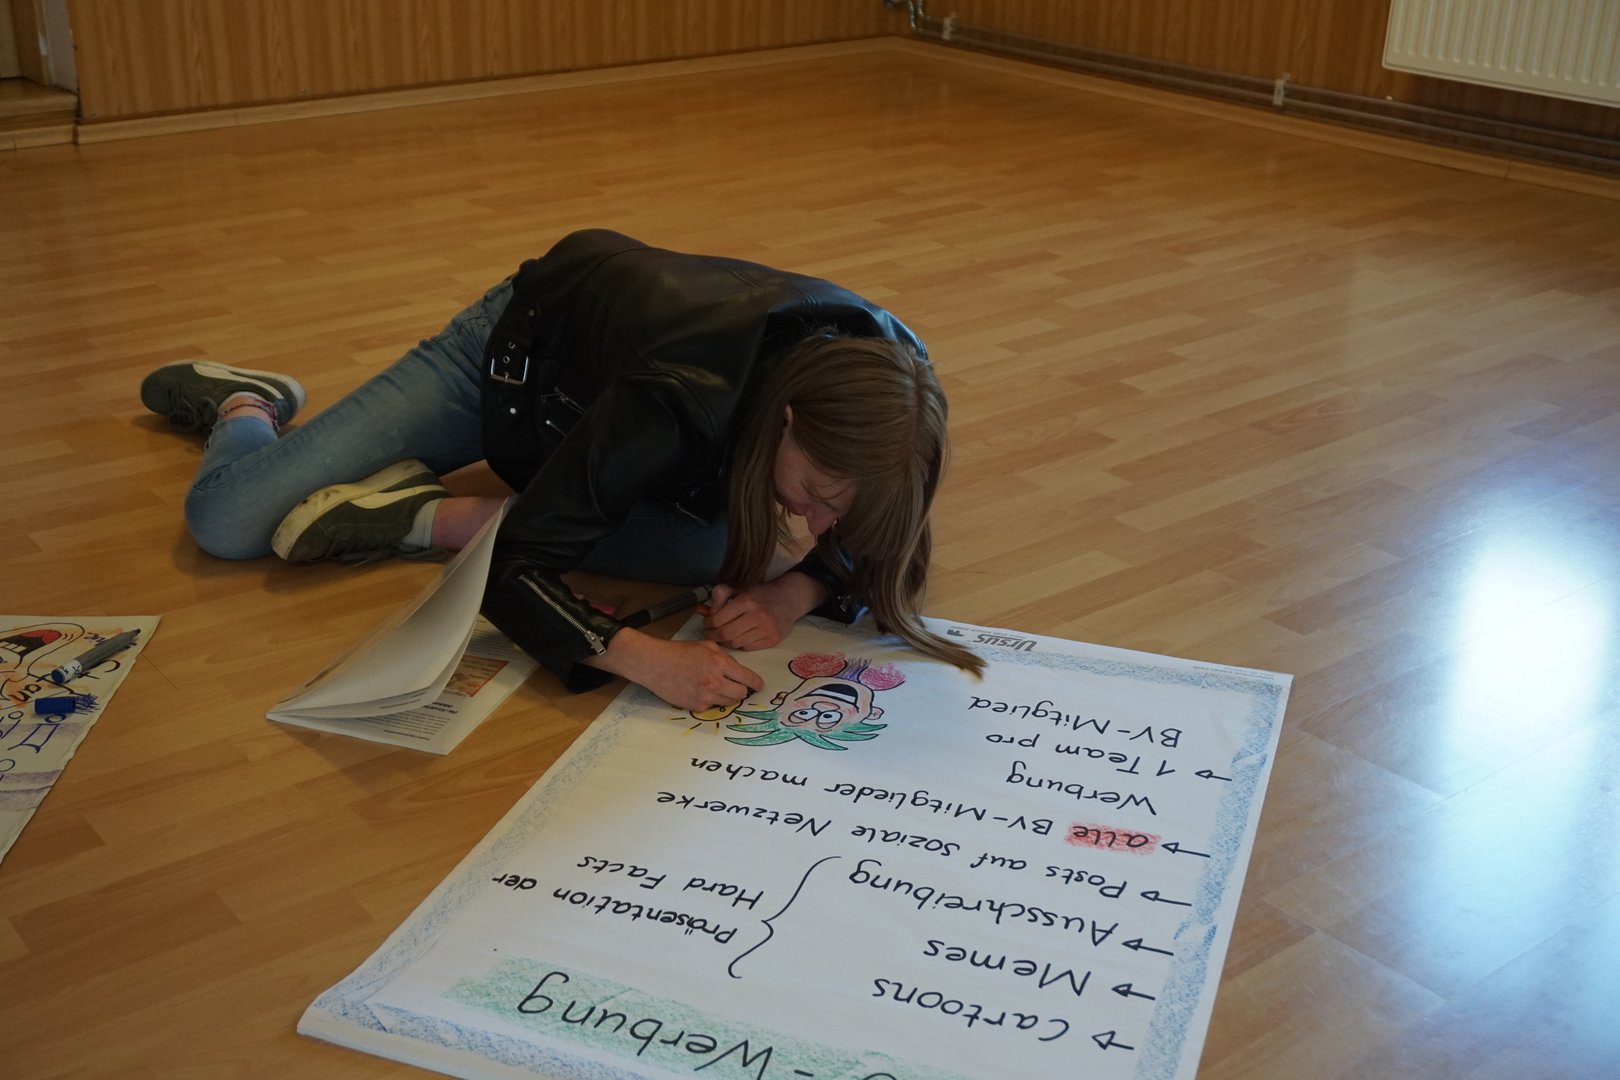 - Werbung
→ Cartoons
→ Memes
→ Ausschreibung
} Präsentation der
Hard Facts
→ Posts auf soziale Netzwerke
→ alle BV-Mitglieder machen
Werbung
→ 1 Team pro
BV-Mitglied
Ursus